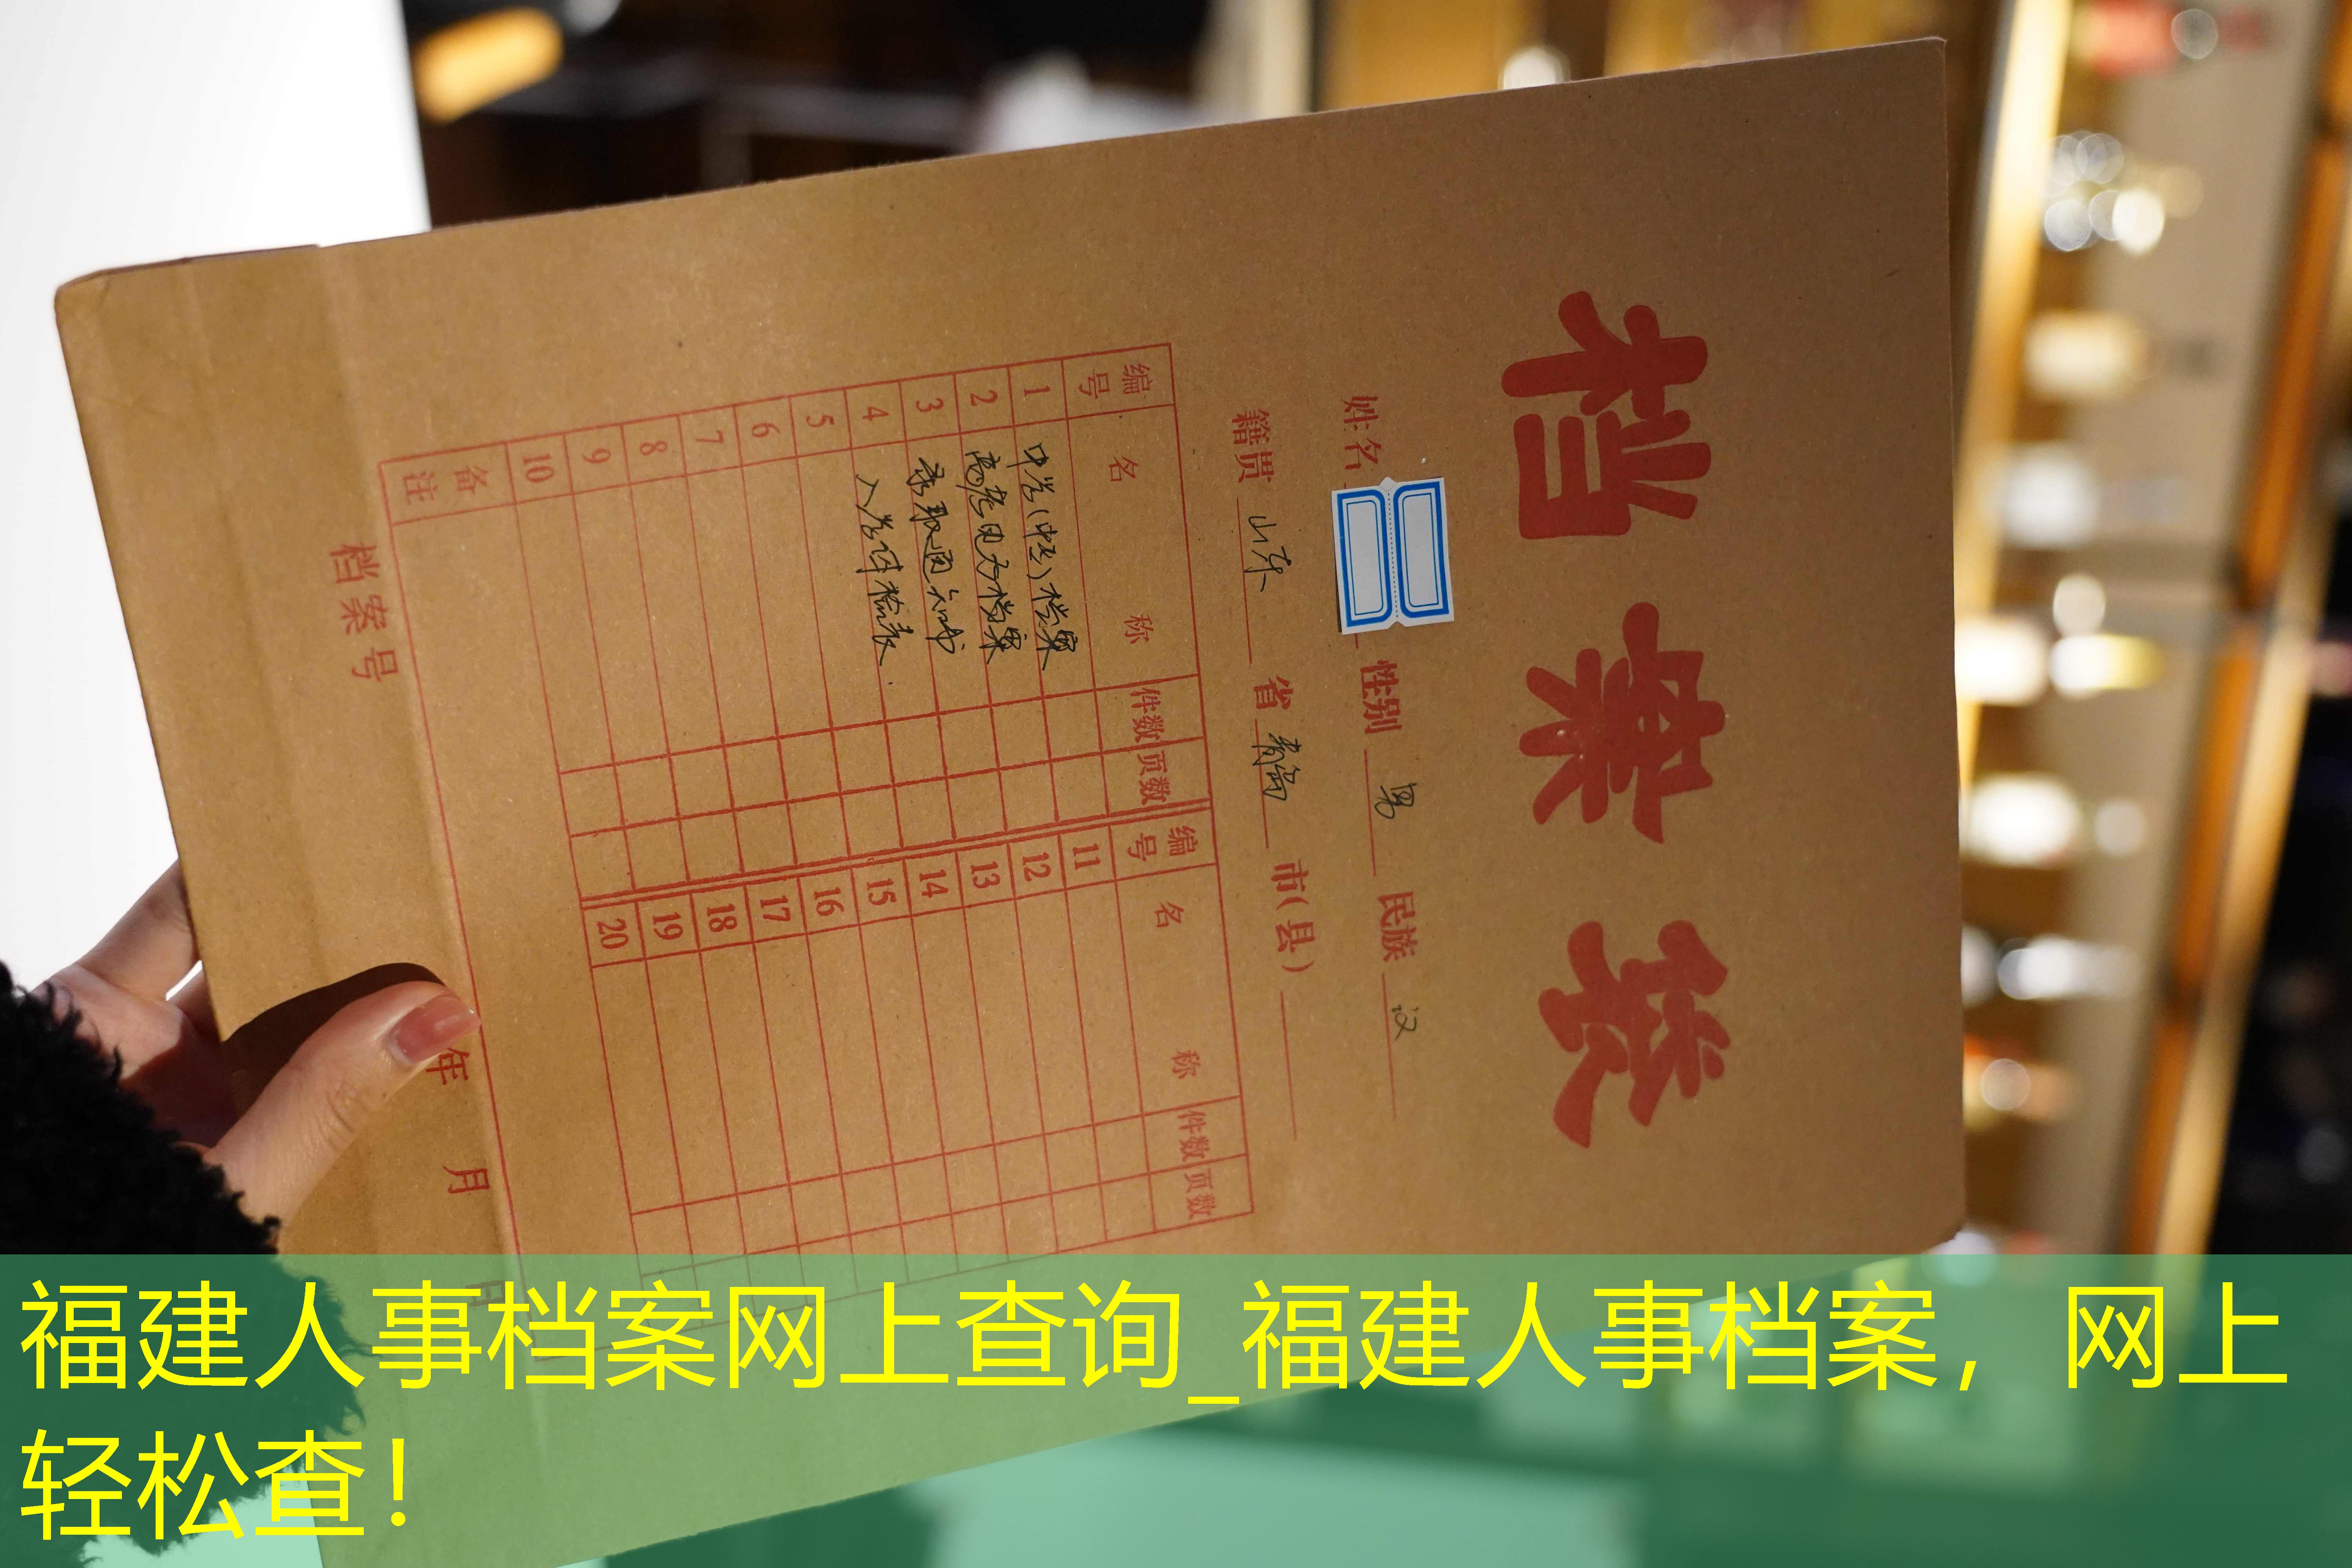 档案袋
姓名 性别 男 民族 汉
籍贯 山东 省 青岛 市(县)
编号 名称 件数 页数 编号 名称 件数 页数
1 中学(中专)档案 11
2 高考电子档案 12
3 录取通知书 13
4 入学体检表 14
5 15
6 16
7 17
8 18
9 19
10 20
备注
档案号 年 月 日
福建人事档案网上查询_福建人事档案，网上
轻松查！